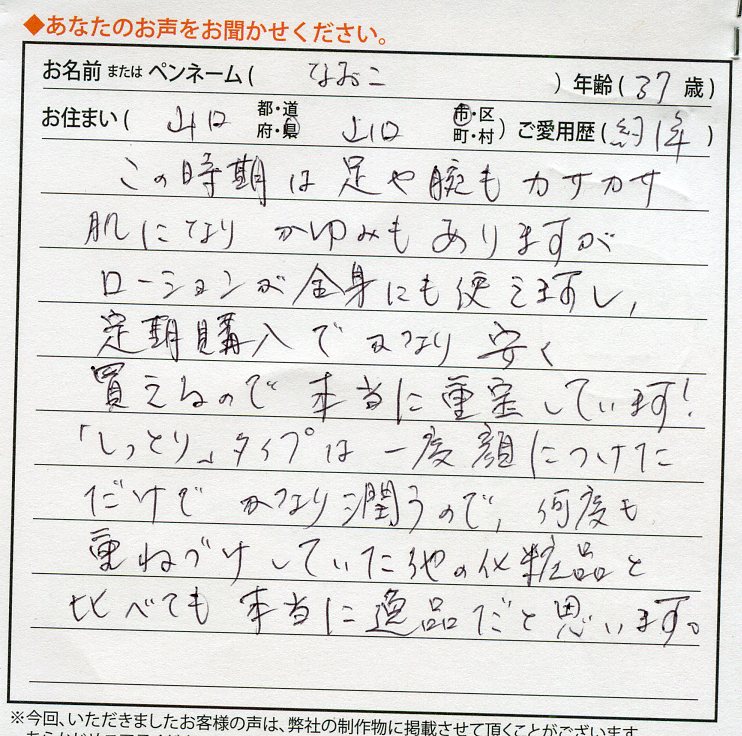 ◆あなたのお声をお聞かせください。
お名前 または ペンネーム( なおこ ) 年齢( 37 歳)
お住まい( 山口 都・道 府・県 山口 市・区 町・村 ) ご愛用歴( 約1年 )
この時期は足や腕もカサカサ
肌になり かゆみも ありますが
ローションが全身にも使えますし、
定期購入で かなり 安く
買えるので 本当に重宝しています!
「しっとり」タイプは 一度顔につけた
だけで かなり潤うので、何度も
重ねづけしていた他の化粧品と
比べても 本当に逸品だと思います。
※今回、いただきましたお客様の声は、弊社の制作物に掲載させて頂くことがございます